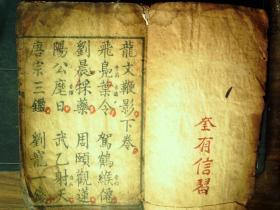 龍文鞭影下卷
飛鳧葉令 駕鶴緱僊
劉晨採藥 周顒觀蓮
陽公麾日 武乙射天
唐宗三鑑 劉寵一錢
奎有信習